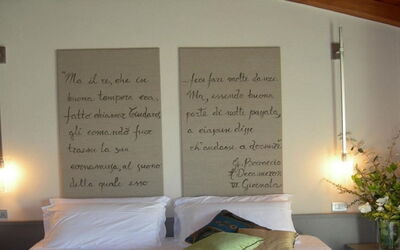 "Ma il re, che in
buona tempera era,
fatto chiamar Tindaro,
gli comandò fuor
traesse la sua
cornamusa, al suono
della quale esso
...fece fare molte danze.
Ma, essendo buona
parte di notte passata,
a ciascun disse
ch'andasse a dormire"
G. Boccaccio
Decameron
VI Giornata